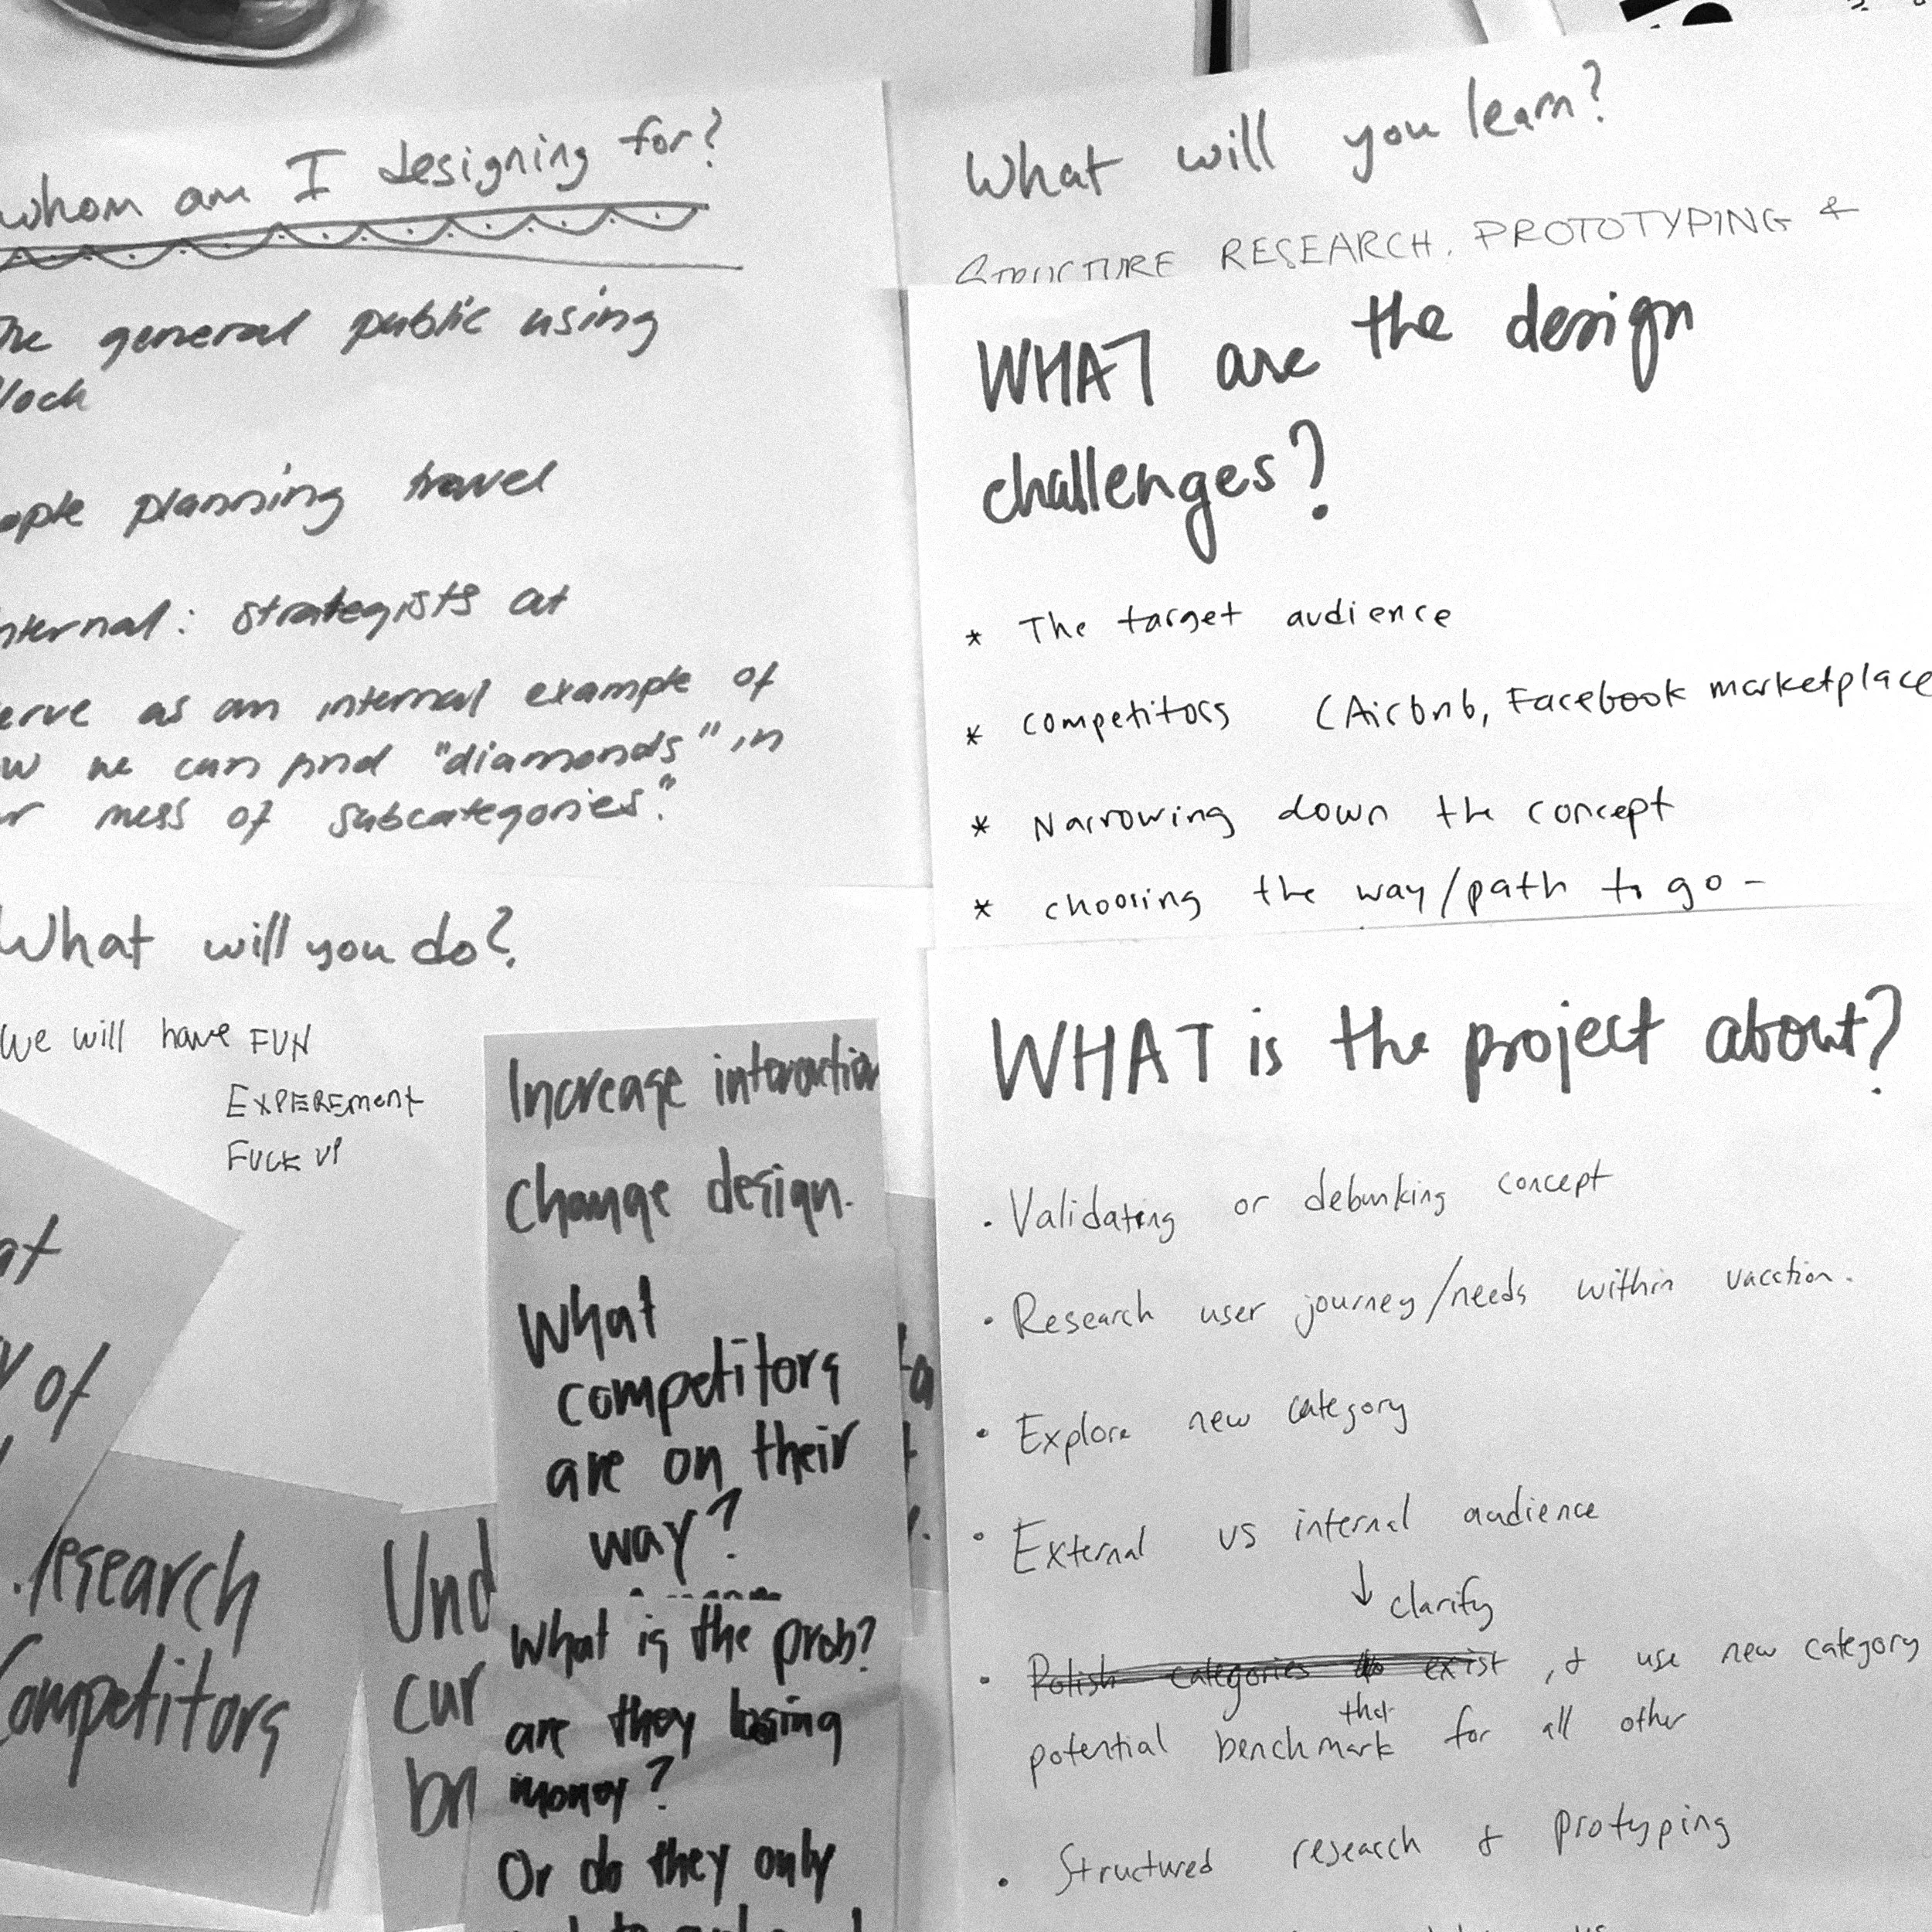 whom am I designing for?
general public using
planning travel
strategists at
as an internal example of
we can find "diamonds" in
mess of subcategories".
What will you learn?
STRUCTURE RESEARCH, PROTOTYPING &
WHAT are the design
challenges?
* The target audience
* competitors (Airbnb, Facebook marketplace
* Narrowing down the concept
* choosing the way/path to go -
What will you do?
We will have FUN
EXPEREMENT
FUCK UP
Increase interaction
Change design.
What
competitors
are on their
way?
What is the prob?
are they losing
money?
Or do they only
at
of
research
Competitors
Und
cur
WHAT is the project about?
• Validating or debunking concept
• Research user journey/needs within vacation.
• Explore new category
• External vs internal audience
↓ clarify
• Polish categories to exist, & use new category
that
potential benchmark for all other
• Structured research & protyping